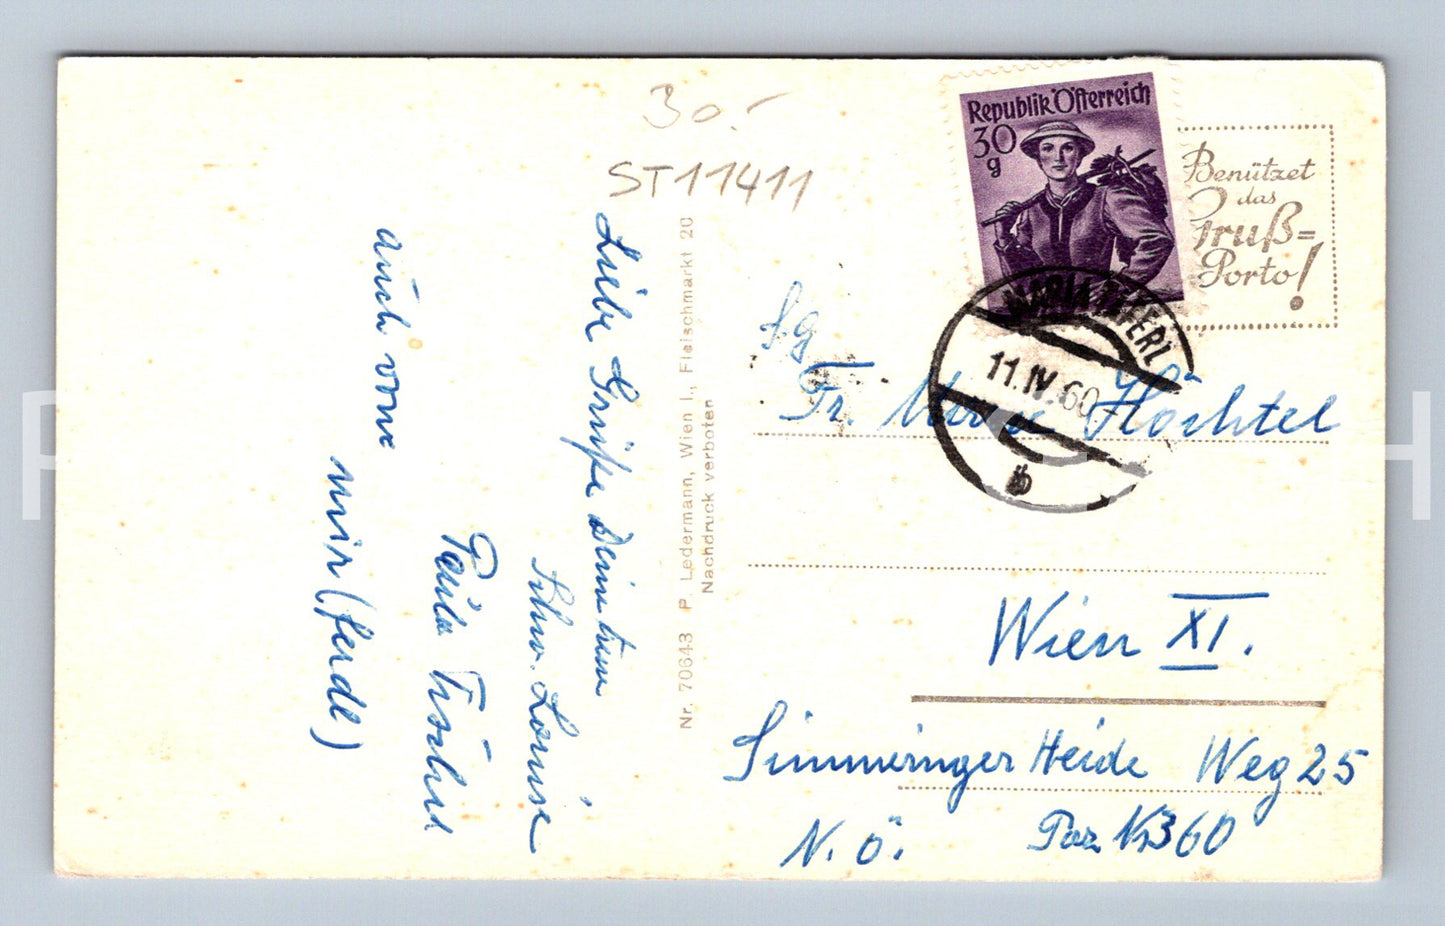 30.-
ST11411
Republik Österreich
30
g
Benützet
das
Gruß=
Porto!
MARIA TAFERL
11.IV.60
b
Fr. Höchtel
Wien XI.
Simmeringer Heide Weg 25
N.Ö. Par Nr 360
Nr. 70643 P. Ledermann, Wien I., Fleischmarkt 20
Nachdruck verboten
Liebe Grüße
Schw. Louise
Paula
auch von
mir
P
H